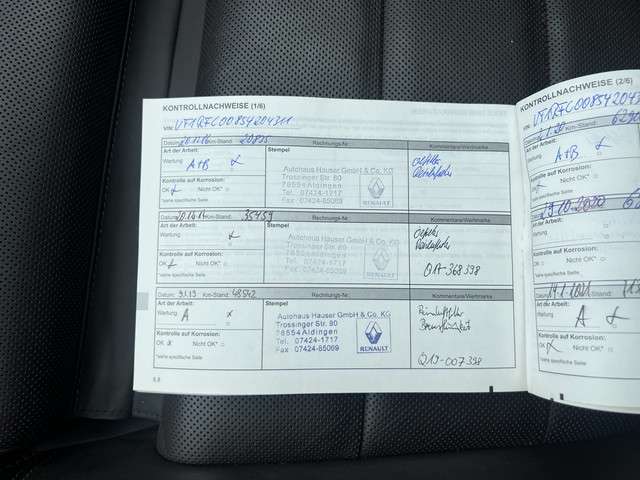 KONTROLLNACHWEISE (1/6)
VIN: VF1RFC00854204311
Datum: 20.11.16 Km-Stand: Rechnungs-Nr. Kommentare/Vermerke
Art der Arbeit: Stempel
Wartung A+B
Autohaus Hauser GmbH & Co. KG
Trossinger Str. 80
78554 Aldingen
Tel. 07424-1717
Fax 07424-85069
RENAULT
Kontrolle auf Korrosion:
OK Nicht OK*
*siehe spezifische Seite
Datum: Km-Stand: 35459 Rechnungs-Nr. Kommentare/Vermerke
Art der Arbeit: Stempel
Wartung
Autohaus Hauser GmbH & Co. KG
Trossinger Str. 80
78554 Aldingen
Tel. 07424-1717
Fax 07424-85069
RENAULT
QA-368398
Kontrolle auf Korrosion:
OK Nicht OK*
*siehe spezifische Seite
Datum: 9.1.19 Km-Stand: 48542 Rechnungs-Nr. Kommentare/Vermerke
Art der Arbeit: Stempel
Wartung A x
Autohaus Hauser GmbH & Co. KG
Trossinger Str. 80
78554 Aldingen
Tel. 07424-1717
Fax 07424-85069
RENAULT
Q19-007398
Kontrolle auf Korrosion:
OK Nicht OK*
*siehe spezifische Seite
KONTROLLNACHWEISE (2/6)
VIN: VF1RFC008542043
Km-Stand:
Art der Arbeit:
Wartung A+B
Kontrolle auf Korrosion:
OK Nicht OK*
*siehe spezifische Seite
29.10.2020
Art der Arbeit:
Wartung
Kontrolle auf Korrosion:
OK Nicht OK*
*siehe spezifische Seite
Art der Arbeit:
Wartung A
Kontrolle auf Korrosion:
OK Nicht OK*
*siehe spezifische Seite